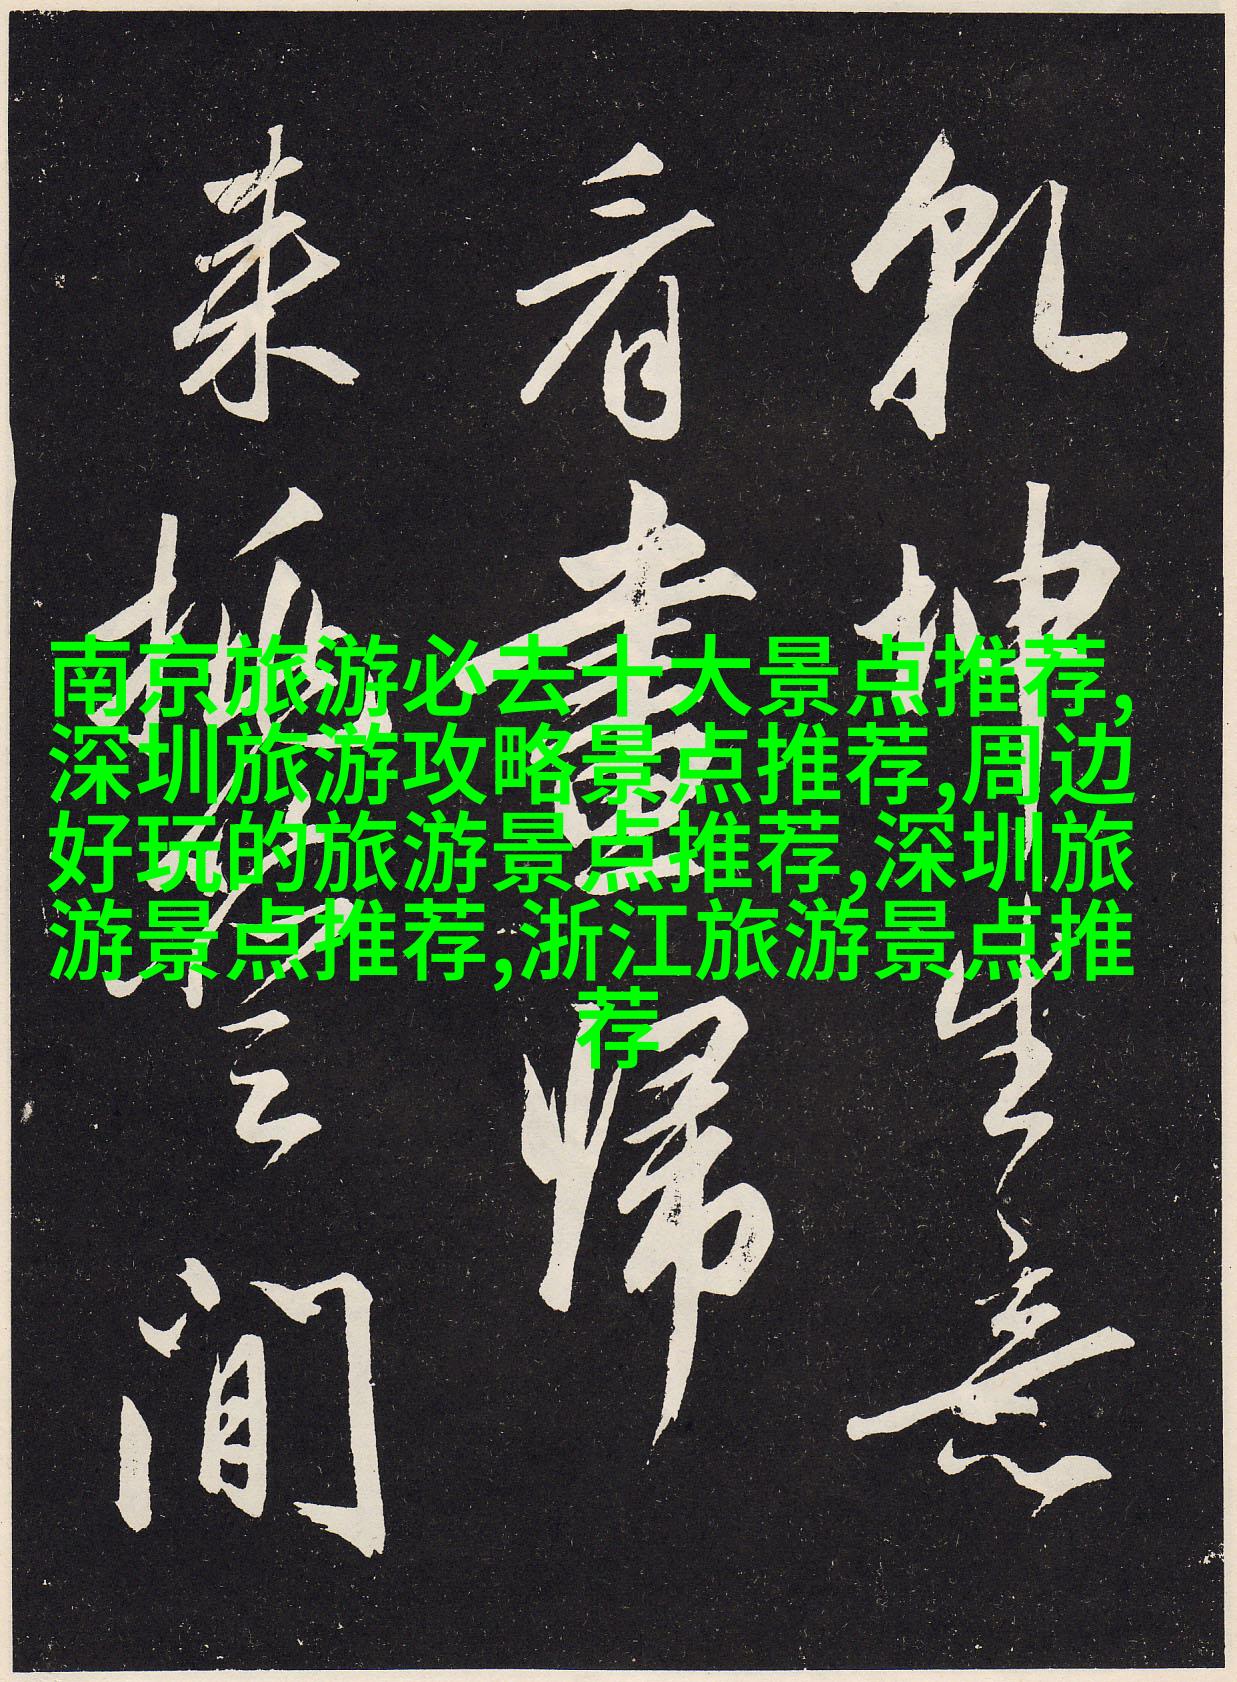 南京旅游必去十大景点推荐,
深圳旅游攻略景点推荐,周边
好玩的旅游景点推荐,深圳旅
游景点推荐,浙江旅游景点推
荐
坤生意
看畫歸
来云間